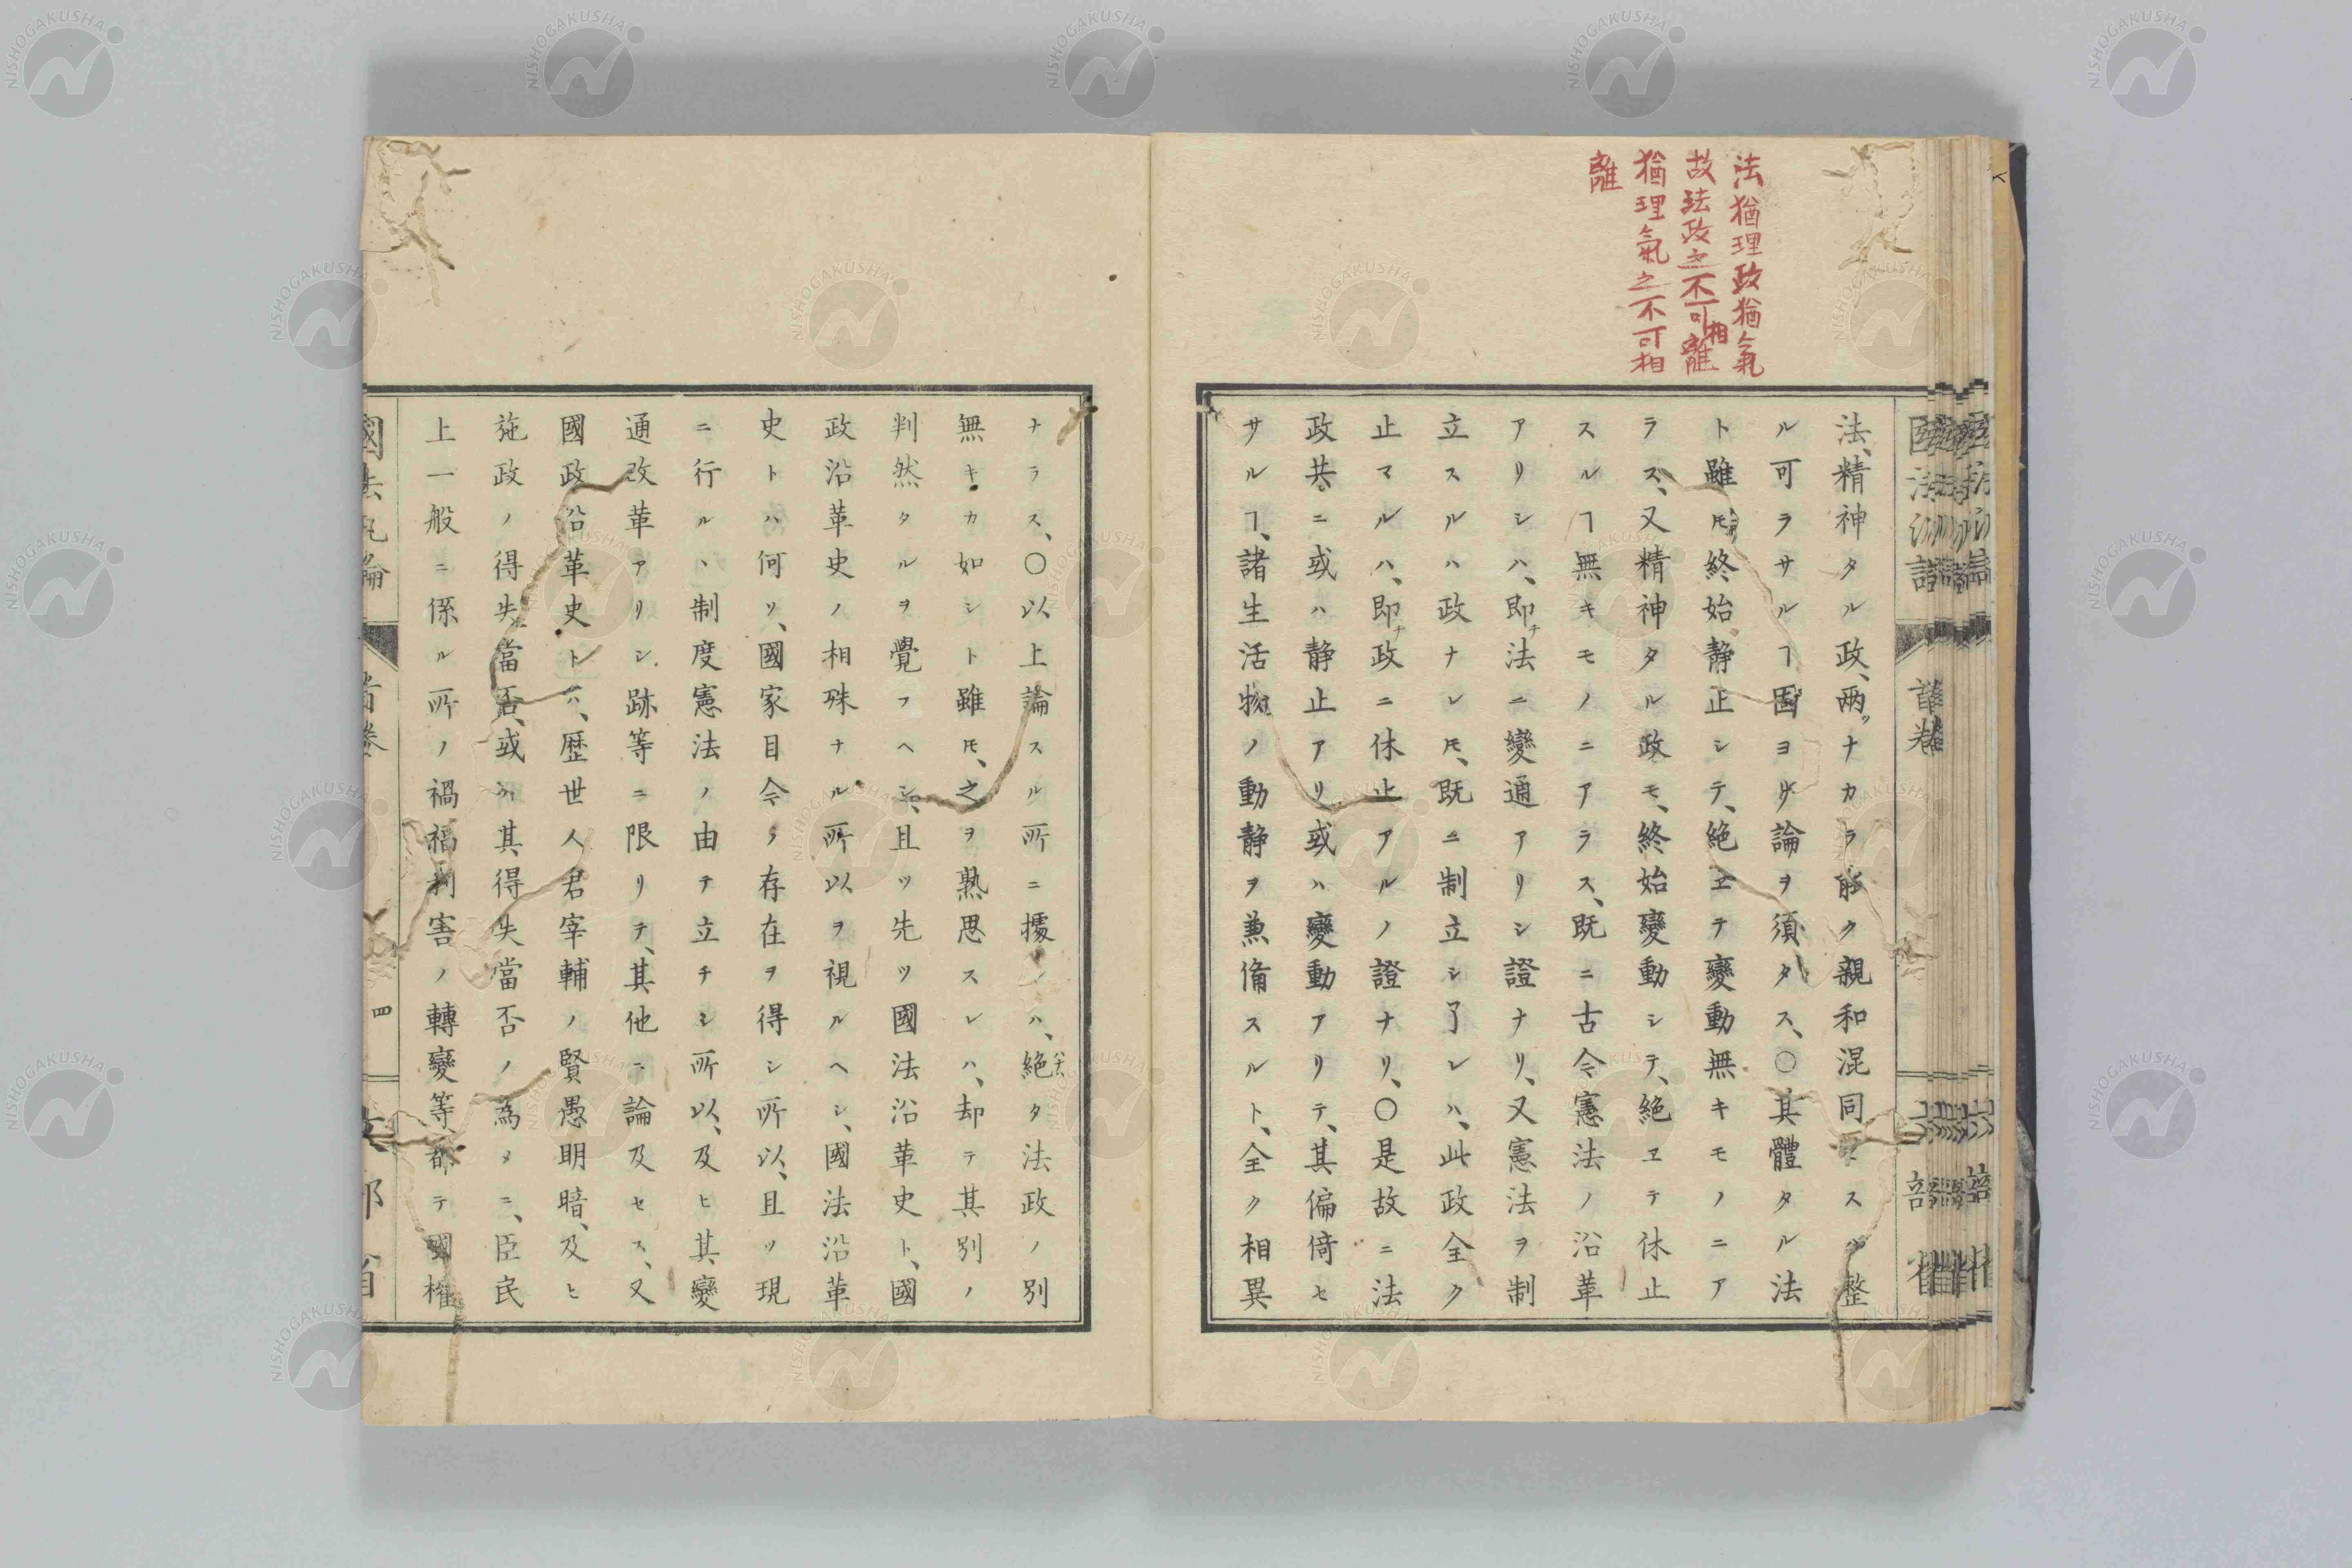 法猶理政猶氣
故法政之不可相離
猶理氣之不可相
離
法、精神タル政、兩ツナカラ能ク親和混同セスハ整
ル可ラサルヿ固ヨリ論ヲ須タス、○其體タル法
ト雖𪜈終始静止シテ、絶ヱテ變動無キモノニア
ラス、又精神タル政モ、終始變動シテ、絶ヱテ休止
スルヿ無キモノニアラス、既ニ古今憲法ノ沿革
アリシハ、即チ法ニ變通アリシ證ナリ、又憲法ヲ制
立スルハ政ナレ𪜈、既ニ制立シ了レハ、此政全ク
止マルハ、即チ政ニ休止アルノ證ナリ、○是故ニ法
政共ニ或ハ静止アリ或ハ變動アリテ、其偏倚セ
サルヿ、諸生活物ノ動静ヲ兼備スルト、全ク相異
ナラス、○以上論スル所ニ據レハ、絶タ法政ノ別
無キカ如シト雖𪜈、之ヲ熟思スレハ、却テ其別ノ
判然タルヲ覺フヘシ、且ツ先ツ國法沿革史ト、國
政沿革史ノ相殊ナル所以ヲ視ルヘシ、國法沿革
史トハ何ソ、國家目今ノ存在ヲ得シ所以、且ツ現
ニ行ルヽ制度憲法ノ由テ立チシ所以、及ヒ其變
通改革アリシ跡等ニ限リテ、其他ニ論及セス、又
國政沿革史トハ、歴世人君宰輔ノ賢愚明暗、及ヒ
施政ノ得失當否、或ハ其得失當否ノ為メニ、臣民
上一般ニ係ル所ノ禍福利害ノ轉變等、都テ國權
國法汎論
首卷
四
文部省